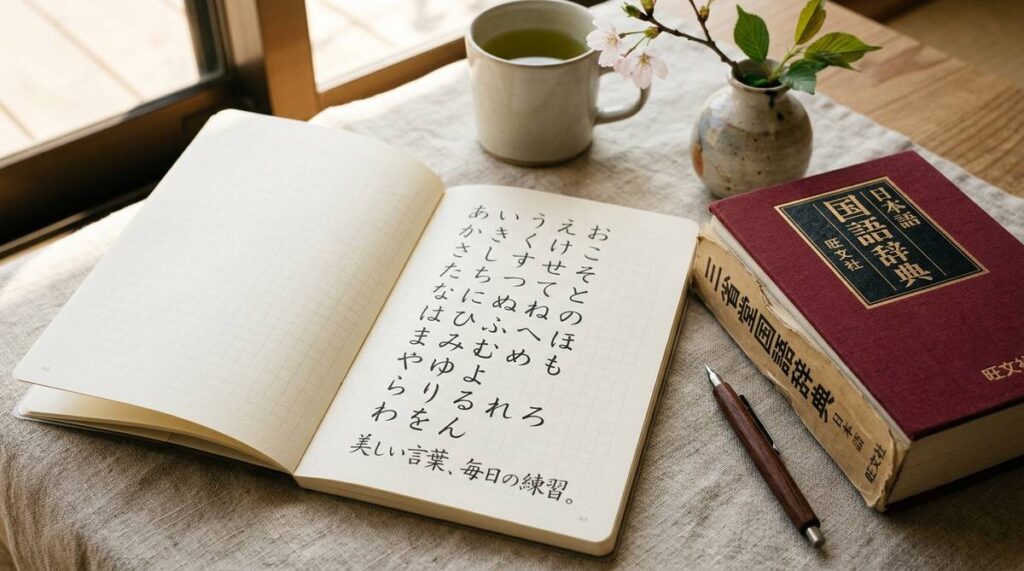 あいうえお
かきくけこ
さしすせそ
たちつてと
なにぬねの
はひふへほ
まみむめも
やゆよ
らりるれろ
わをん
美しい言葉、毎日の練習。
日本語
国語辞典
旺文社
旺文社
三省堂国語辞典 日本語 旺文社